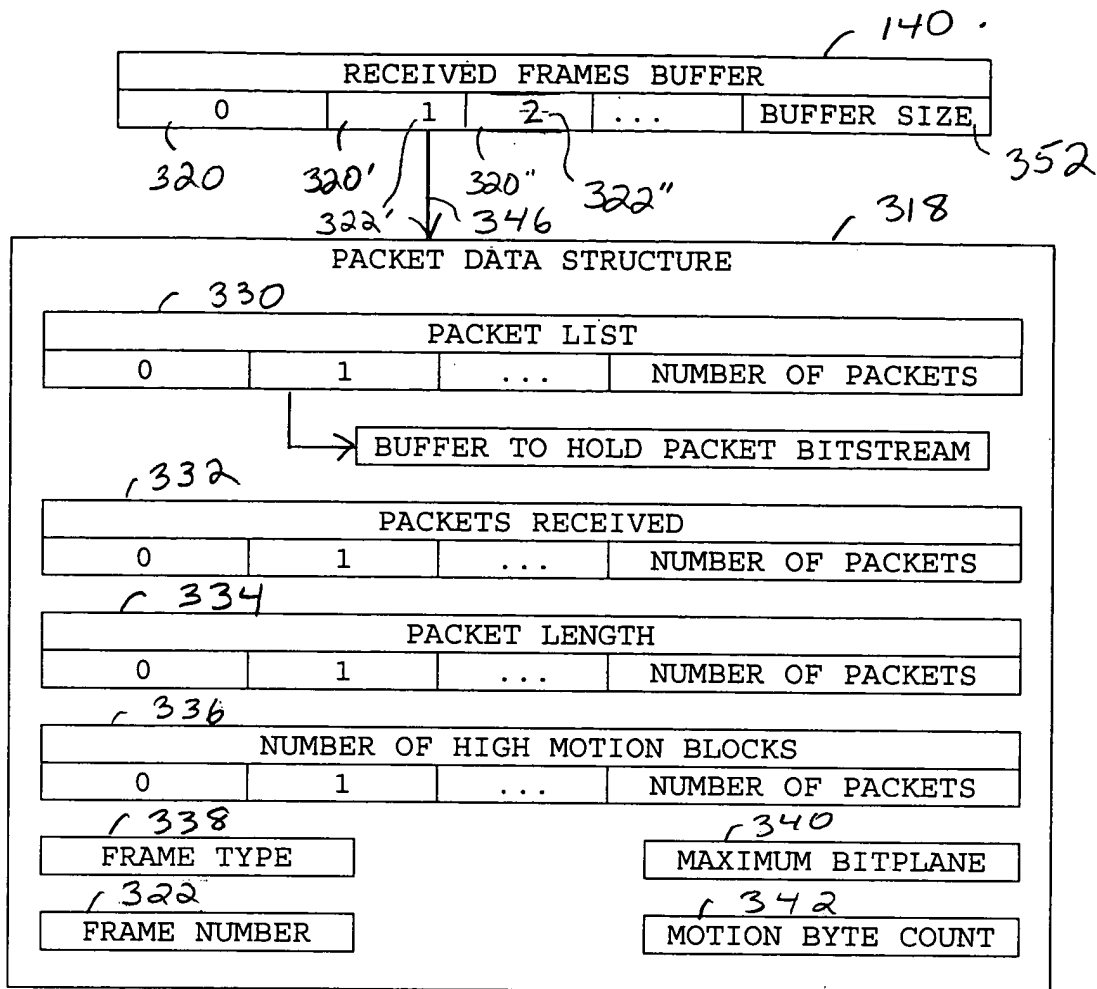 140 .
RECEIVED FRAMES BUFFER
0 1 2 ... BUFFER SIZE
320 320' 322' 346 320" 322" 352
318
PACKET DATA STRUCTURE
330
PACKET LIST
0 1 ... NUMBER OF PACKETS
BUFFER TO HOLD PACKET BITSTREAM
332
PACKETS RECEIVED
0 1 ... NUMBER OF PACKETS
334
PACKET LENGTH
0 1 ... NUMBER OF PACKETS
336
NUMBER OF HIGH MOTION BLOCKS
0 1 ... NUMBER OF PACKETS
338 340
FRAME TYPE MAXIMUM BITPLANE
322 342
FRAME NUMBER MOTION BYTE COUNT